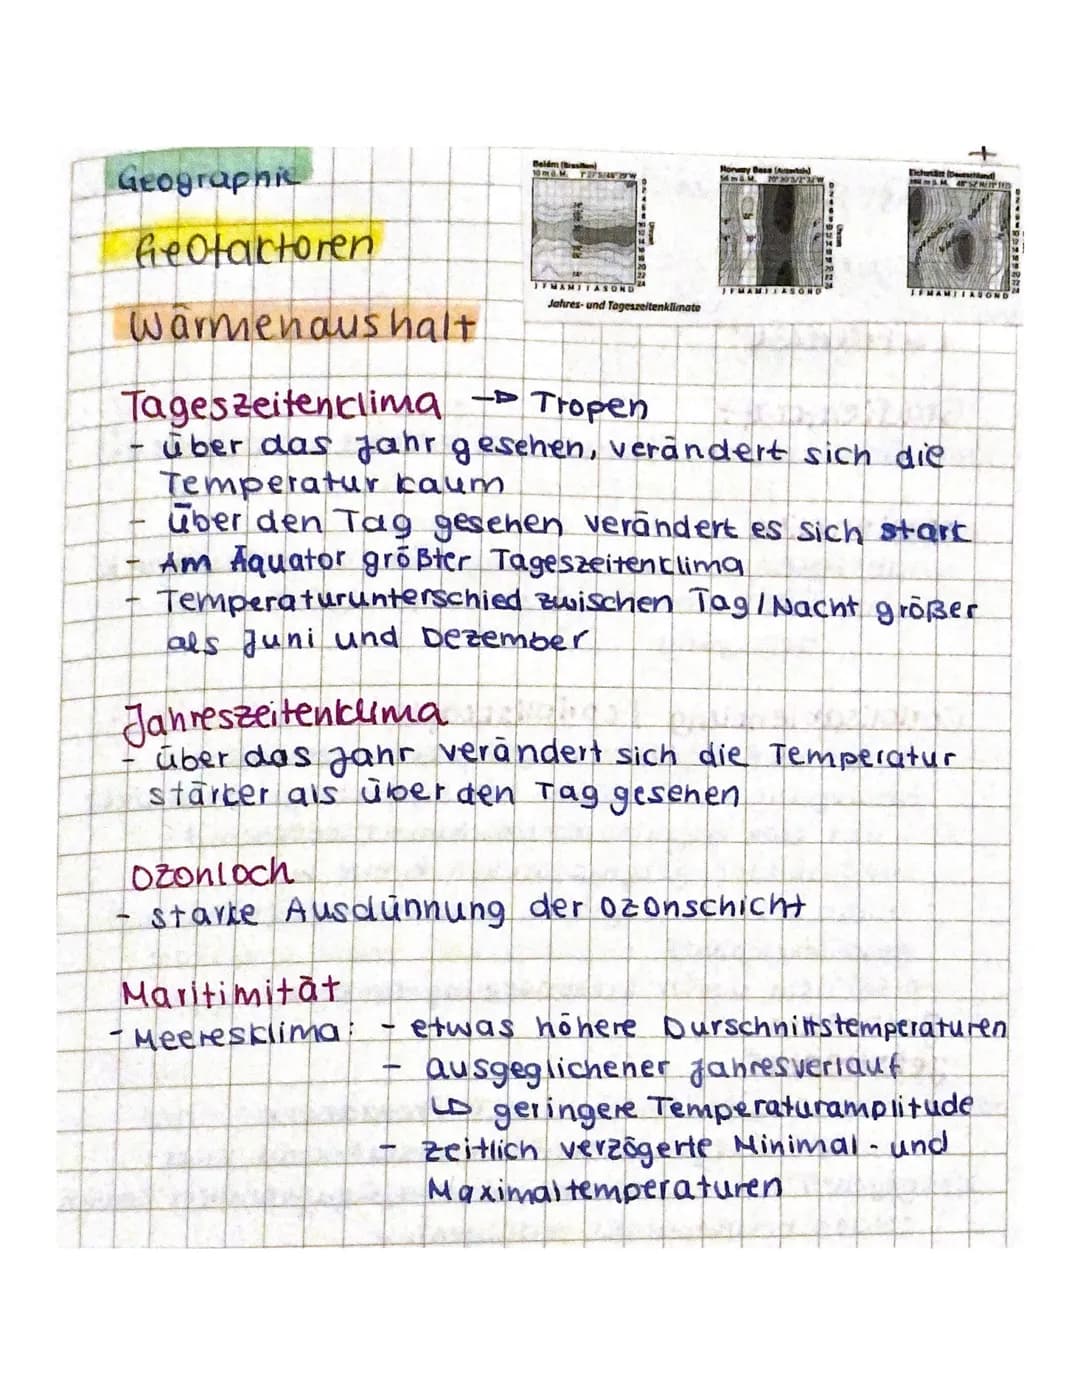 Geographie
Geofactoren
Wärmehaushalt
Belém (Brasilien)
10 m ü. M.
Norway Base (Antarktis)
56 m ü. M.
Eichstätt (Deutschland)
J F M A M J J A S O N D
J F M A M J J A S O N D
J F M A M J J A S O N D
Jahres- und Tageszeitenklimate
Tageszeitenclima → Tropen
- über das Jahr gesehen, verändert sich die
Temperatur kaum
- über den Tag gesehen verändert es sich stark
- Am Äquator größter Tageszeitenclima
- Temperaturunterschied zwischen Tag/Nacht größer
als Juni und Dezember
Jahreszeitenklima
- über das Jahr verändert sich die Temperatur
stärker als über den Tag gesehen
Ozonloch
- starke Ausdünnung der Ozonschicht
Maritimität
- Meeresklima: - etwas höhere Durschnittstemperaturen
- ausgeglichener Jahresverlauf
↳ geringere Temperaturamplitude
- zeitlich verzögerte Minimal- und
Maximaltemperaturen